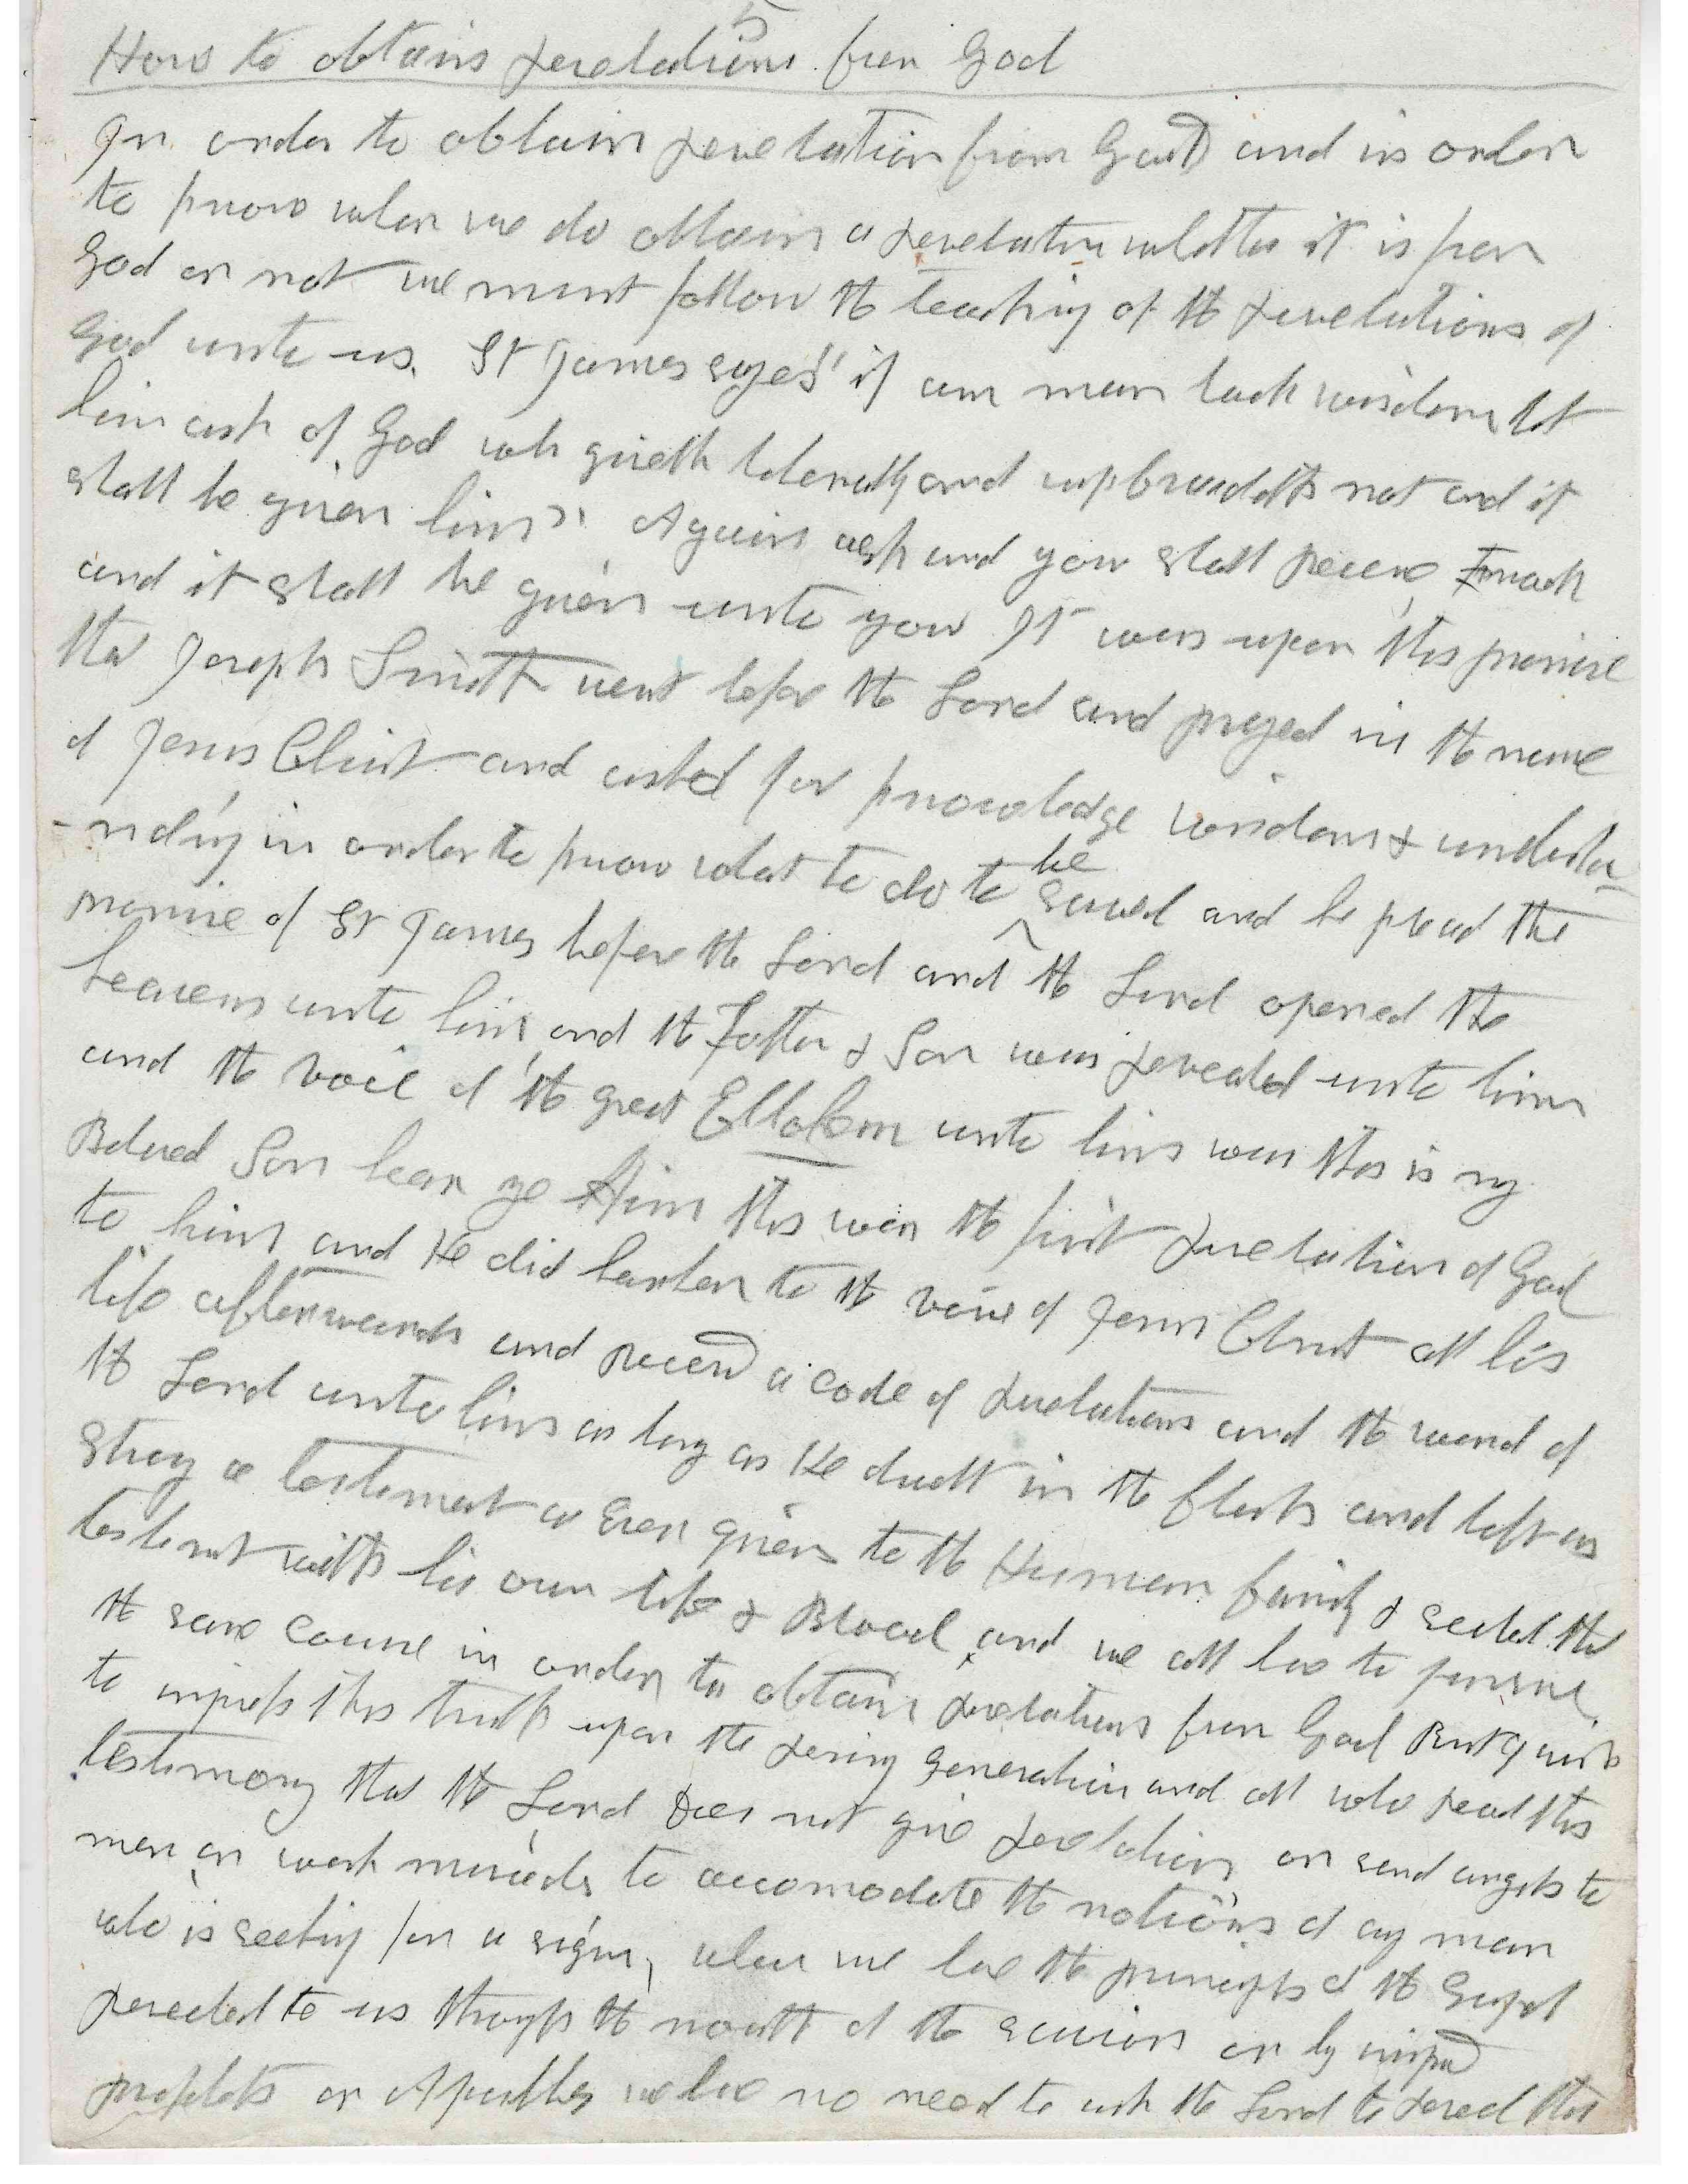 5
How to obtain Revelations from God
In order to obtain revelation from God and in order
to know when we do obtain a revelation whether it is from
God or not we must follow the teaching of the revelations of
God unto us. St James sayes "if am man lack wisdom let
him ask of God who giveth liberally and upbraideth not and it
shall be given him" Again ask and you shall receive Knock
and it shall be given unto you It was upon this promise
that Joseph Smith went before the Lord and prayed in the name
of Jesus Christ and asked for knowledge wisdom & understa-
-nding in order to know what to do to be saved and he plead the
promise of St James before the Lord and the Lord opened the
heavens unto him and the Father & Son was revealed unto him
and the voice of the great Ellohem unto him was this is my
Beloved Son hear ye Him this was the first revelation of God
to him and He did harken to the voice of Jesus Christ all his
life afterwards and received a code of revelations and the word of
the Lord unto him as long as He dwelt in the flesh and left as
strong a testament as Ever given to the Human family & sealed that
testament with his own life & Blood, and we all have to pursue
the same course in order to obtain revelations from God But I wish
to impress this truth upon the rising generation and all who read this
testimony that the Lord Does not give revelation or send angels to
men or work miracles to accomodate the notions of any man
who is seeking for a sign, when we have the principls of the Gospel
revealed to us through the mouth of the savior or by inspired
prophets or Apostles we have no need to ask the Lord to reveal that